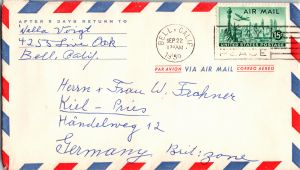 AFTER 5 DAYS RETURN TO
Nella Voigt
4255 Live Oak
Bell, Calif.
BELL, CALIF.
SEP 22
1950
AIR MAIL
15¢
UNITED STATES POSTAGE
PAR AVION VIA AIR MAIL CORREO AEREO
Herrn + Frau W. Frahner
Kiel - Pries
Händelweg 12
Germany Brit: zone